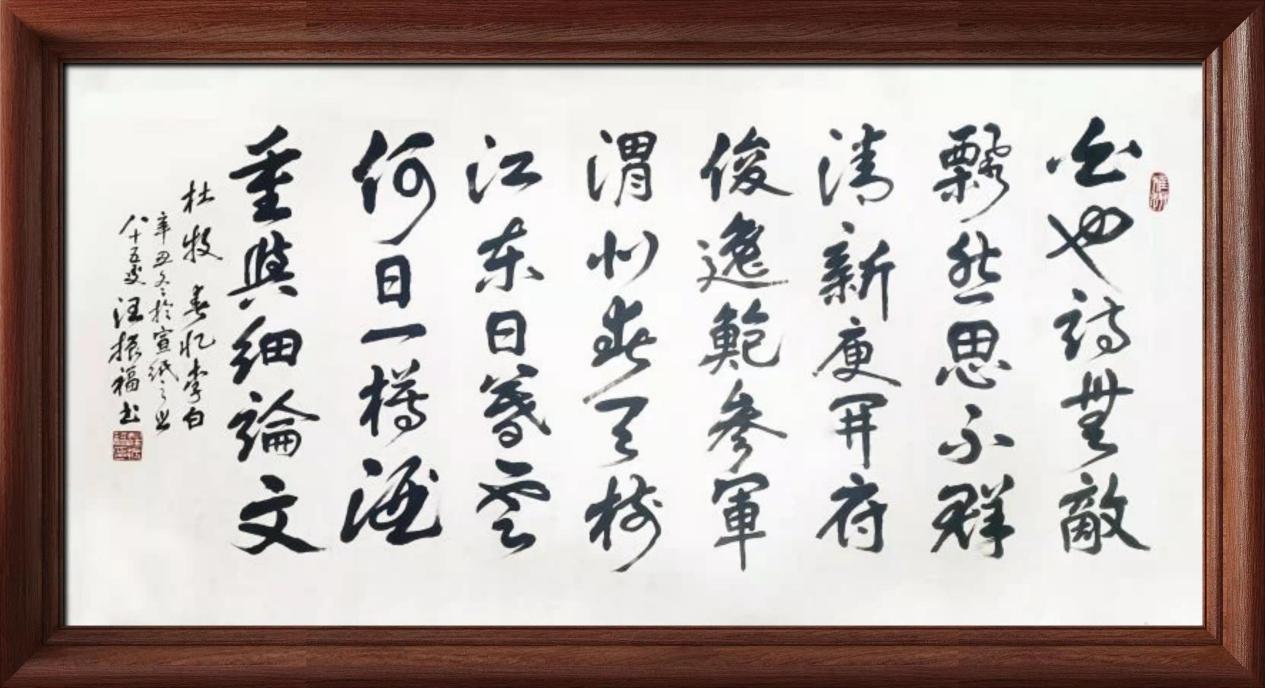 白也詩無敵
飄然思不群
清新庾開府
俊逸鮑參軍
渭北春天樹
江东日暮雲
何日一樽酒
重與細論文
杜牧 春忆李白
辛丑冬於宣紙之
八十五叟 汪振福书